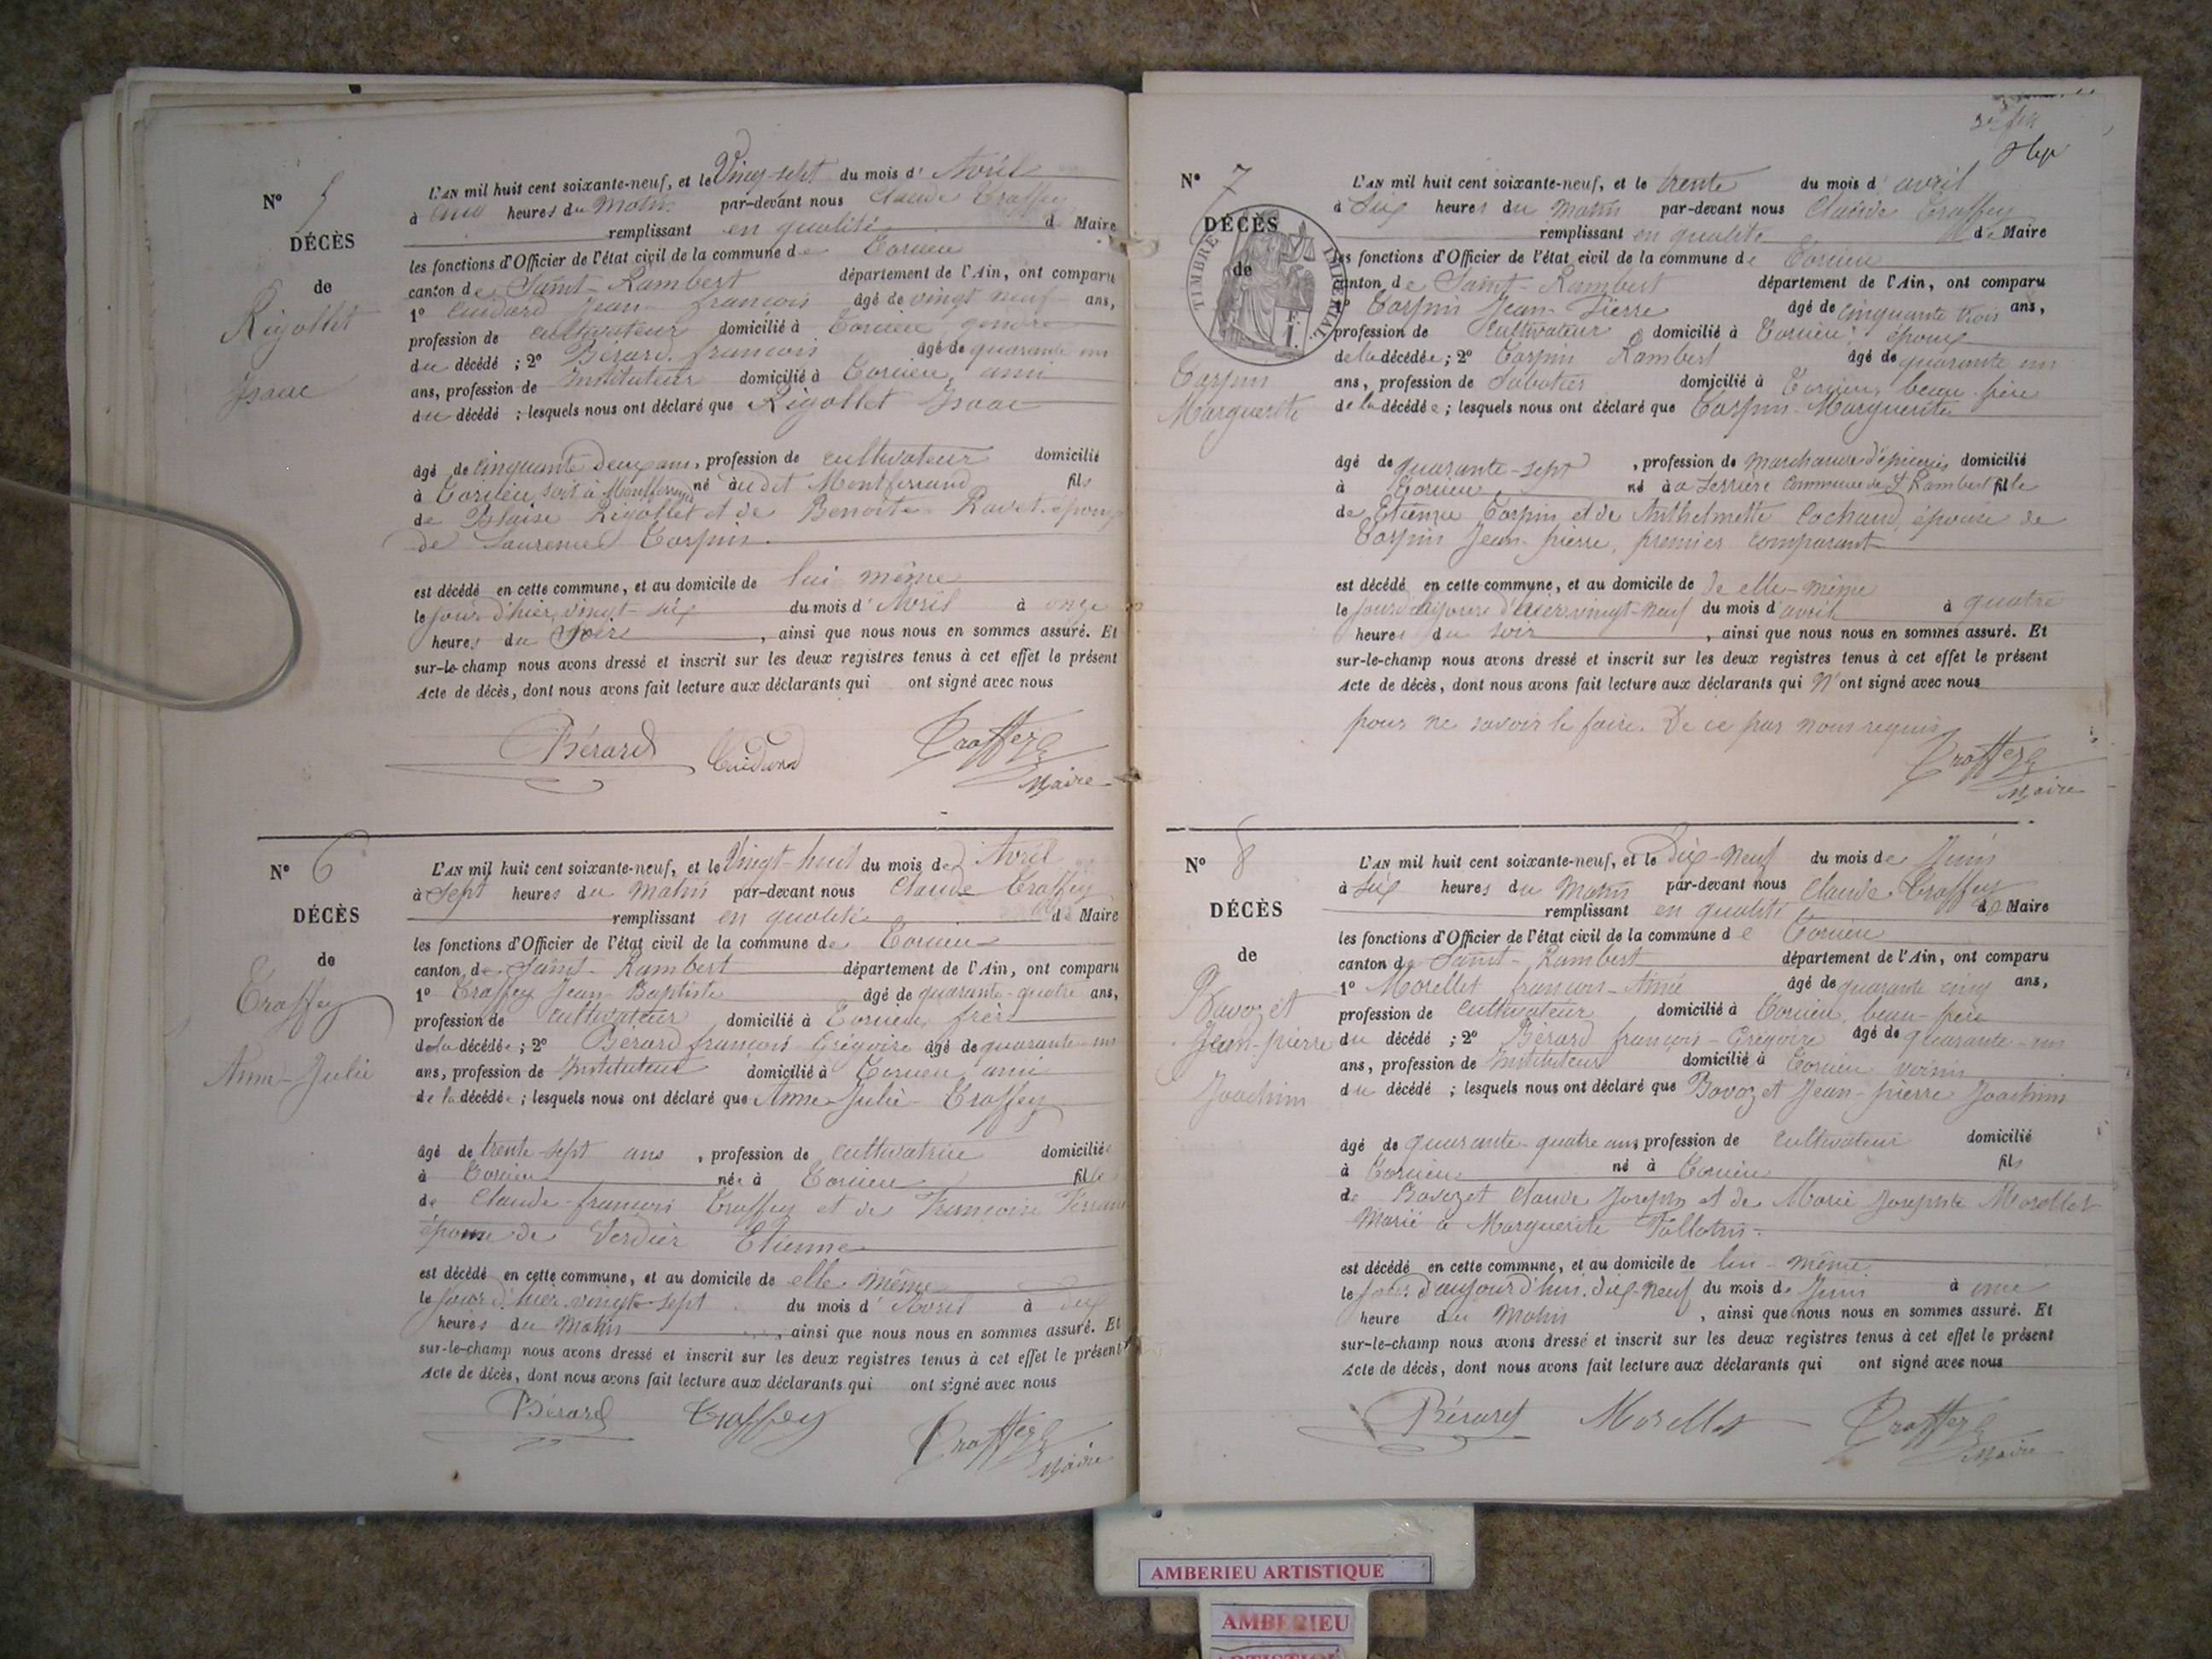 N° 5
DÉCÈS
de
Rigollet
Isaac
L'AN mil huit cent soixante-neuf, et le Vingt-sept du mois d' Avril
à cinq heures du Matin par-devant nous Claude Traffey
remplissant en qualité de Maire
les fonctions d'Officier de l'état civil de la commune de Torcieu
canton de Saint-Rambert département de l'Ain, ont comparu
1° Jean-François âgé de vingt neuf ans,
profession de cultivateur domicilié à Torcieu, gendre
du décédé ; 2° Bérard François âgé de quarante un
ans, profession de Instituteur domicilié à Torcieu, ami
du décédé ; lesquels nous ont déclaré que Rigollet Isaac
âgé de cinquante deux ans, profession de cultivateur domicilié
à Torcieu, soit à Montferrand né audit Montferrand fils
de Blaise Rigollet et de Benoite Ravet, époux
de Laurence Tarpin
est décédé en cette commune, et au domicile de lui même
le jour d'hier, vingt-six du mois d' Avril à onze
heures du Soir, ainsi que nous nous en sommes assuré. Et
sur-le-champ nous avons dressé et inscrit sur les deux registres tenus à cet effet le présent
Acte de décès, dont nous avons fait lecture aux déclarants qui ont signé avec nous
Bérard Traffey
Maire
N° 6
DÉCÈS
de
Traffey
Anne-Julie
L'AN mil huit cent soixante-neuf, et le Vingt-huit du mois de Avril
à Sept heures du Matin par-devant nous Claude Traffey
remplissant en qualité de Maire
les fonctions d'Officier de l'état civil de la commune de Torcieu
canton de Saint-Rambert département de l'Ain, ont comparu
1° Traffey Jean-Baptiste âgé de quarante-quatre ans,
profession de cultivateur domicilié à Torcieu, frère
de la décédée ; 2° Bérard François Grégoire âgé de quarante-un
ans, profession de Instituteur domicilié à Torcieu, ami
de la décédée ; lesquels nous ont déclaré que Anne-Julie Traffey
âgé de trente-sept ans, profession de cultivatrice domiciliée
à Torcieu née à Torcieu fille
de Claude-François Traffey et de Françoise
épouse de Verdier Etienne
est décédé en cette commune, et au domicile de elle même
le jour d'hier vingt-sept du mois d' Avril à dix
heures du Matin, ainsi que nous nous en sommes assuré. Et
sur-le-champ nous avons dressé et inscrit sur les deux registres tenus à cet effet le présent
Acte de décès, dont nous avons fait lecture aux déclarants qui ont signé avec nous
Bérard Traffey Traffey
Maire
N° 7
DÉCÈS
de
TIMBRE IMPÉRIAL
1 F.
Tarpin
Marguerite
L'AN mil huit cent soixante-neuf, et le trente du mois d' avril
à Six heures du Matin par-devant nous Claude Traffey
remplissant en qualité de Maire
les fonctions d'Officier de l'état civil de la commune de Torcieu
canton de Saint-Rambert département de l'Ain, ont comparu
1° Tarpin Jean-Pierre âgé de cinquante trois ans,
profession de Cultivateur domicilié à Torcieu, époux
de la décédée ; 2° Tarpin Rambert âgé de quarante un
ans, profession de Sabotier domicilié à Torcieu, beau-frère
de la décédée ; lesquels nous ont déclaré que Tarpin Marguerite
âgé de quarante-sept, profession de Marchande d'épiceries domicilié
à Torcieu né à Serrière Commune de St Rambert fille
de Etienne Tarpin et de Anthelmette Cochaud, épouse de
Tarpin Jean-pierre, premier comparant
est décédé en cette commune, et au domicile de de elle-même
le jour d'hier vingt-neuf du mois d' avril à quatre
heures du soir, ainsi que nous nous en sommes assuré. Et
sur-le-champ nous avons dressé et inscrit sur les deux registres tenus à cet effet le présent
Acte de décès, dont nous avons fait lecture aux déclarants qui N'ont signé avec nous
pour ne savoir le faire. De ce par nous requis
Traffey
Maire
N° 8
DÉCÈS
de
Bavozet
Jean-pierre
Joachim
L'AN mil huit cent soixante-neuf, et le Dix-Neuf du mois de Juin
à Six heures du Matin par-devant nous Claude Traffey
remplissant en qualité de Maire
les fonctions d'Officier de l'état civil de la commune de Torcieu
canton de Saint-Rambert département de l'Ain, ont comparu
1° Morellet François-Aimé âgé de quarante cinq ans,
profession de Cultivateur domicilié à Torcieu, beau-frère
du décédé ; 2° Bérard François-Grégoire âgé de quarante-un
ans, profession de Instituteur domicilié à Torcieu voisin
du décédé ; lesquels nous ont déclaré que Bavozet Jean-pierre Joachim
âgé de quarante-quatre ans, profession de cultivateur domicilié
à Torcieu né à Torcieu fils
de Bavozet Claude Joseph et de Marie Josephte Morellet
Marié à Marguerite
est décédé en cette commune, et au domicile de lui-même
le jour d'aujourd'hui, dix-neuf du mois de Juin à une
heure du Matin, ainsi que nous nous en sommes assuré. Et
sur-le-champ nous avons dressé et inscrit sur les deux registres tenus à cet effet le présent
Acte de décès, dont nous avons fait lecture aux déclarants qui ont signé avec nous
Bérard Morellet Traffey
Maire
AMBERIEU ARTISTIQUE
AMBERIEU
ARTISTIQUE